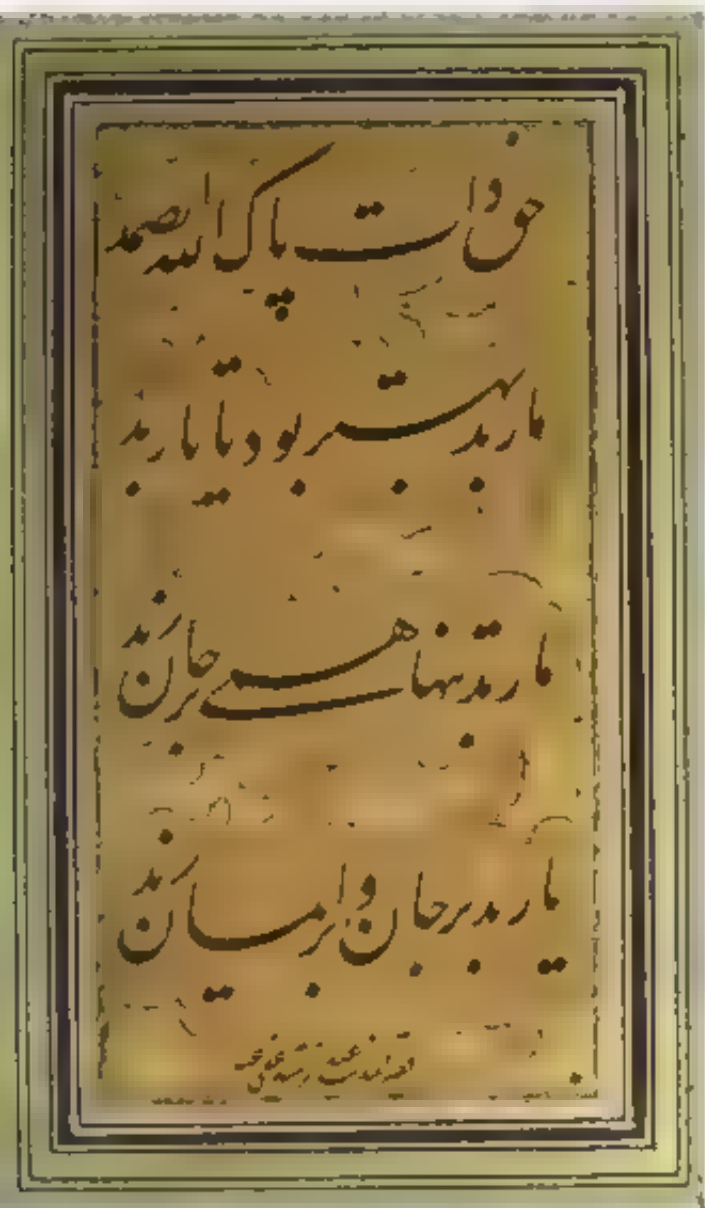 حق ذات پاک الله الصمد
مار بد بهتر بود تا یار بد
مار بد تنها همی بر جان زند
یار بد بر جان و بر ایمان زند